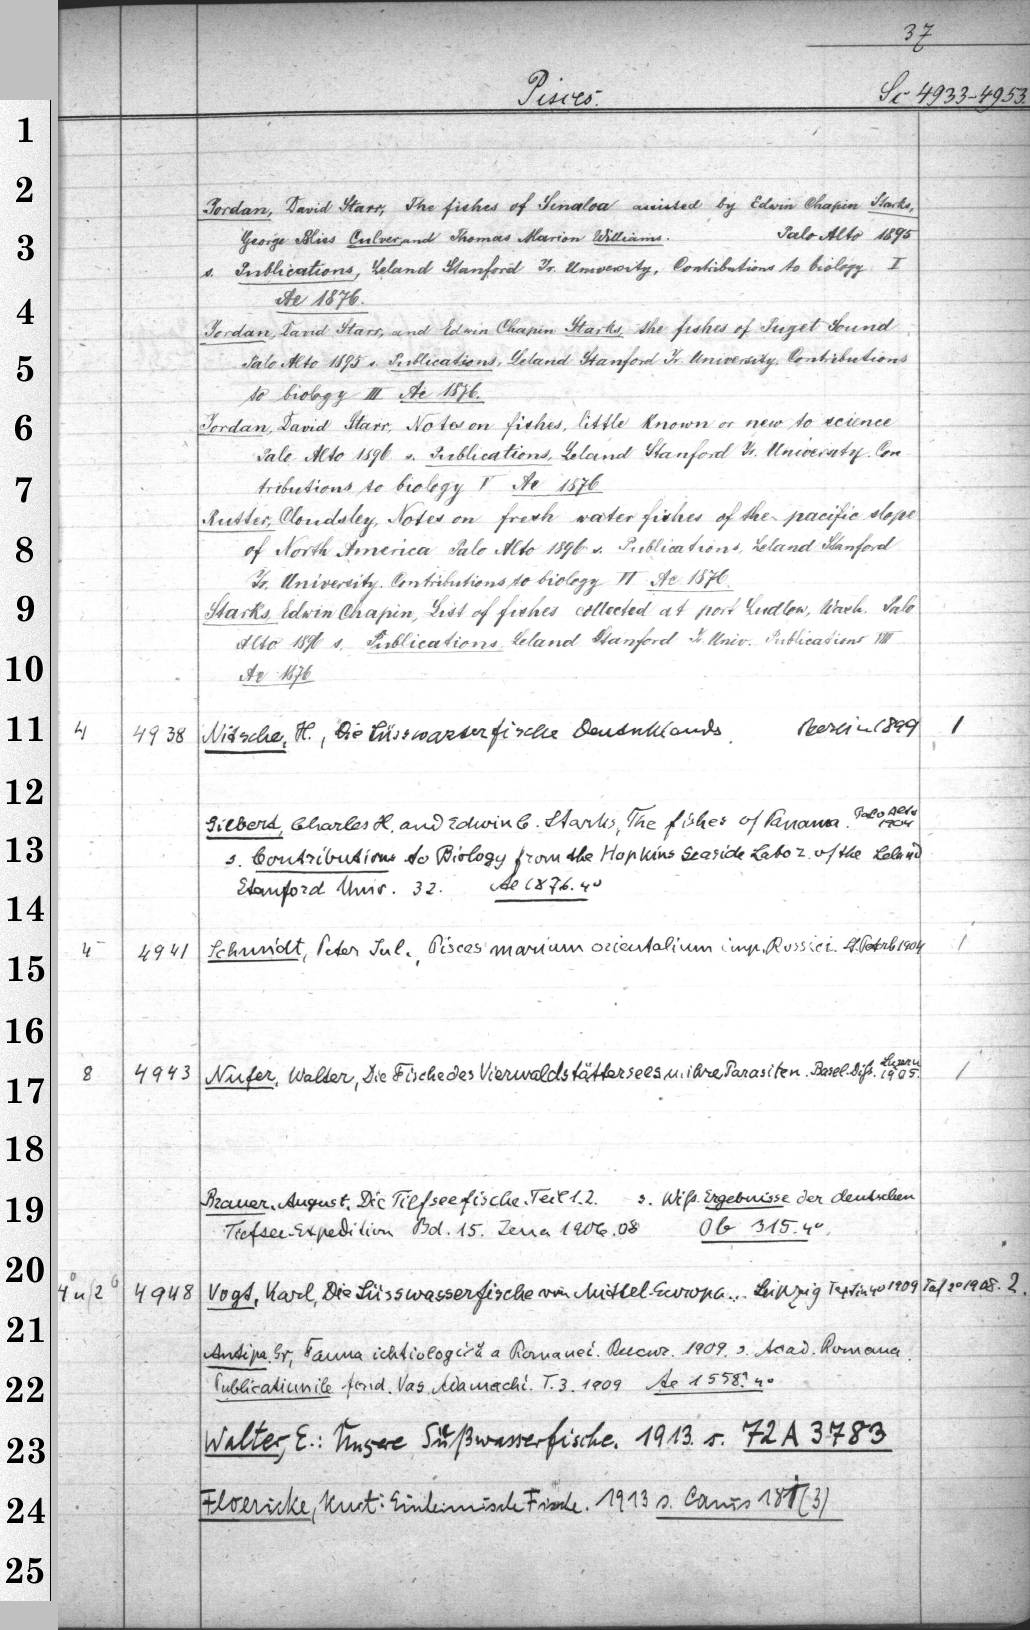 37
Pisces.
Sc 4933-4953.
1
2
Jordan, David Starr, The fishes of Sinaloa assisted by Edwin Chapin Starks,
3 George Bliss Culver and Thomas Marion Williams. Palo Alto 1895
s. Publications, Leland Stanford Jr. University, Contributions to biology I
4 Ae 1876.
Jordan, David Starr, and Edwin Chapin Starks, the fishes of Puget Sound
5 Palo Alto 1895 s. Publications, Leland Stanford Jr. University. Contributions
to biology III Ae 1876.
6 Jordan, David Starr, Notes on fishes, little known or new to science
Palo Alto 1896 s. Publications, Leland Stanford Jr. University. Con
7 tributions to biology V Ae 1876
Rutter, Cloudsley, Notes on fresh water fishes of the pacific slope
8 of North America Palo Alto 1896 s. Publications, Leland Stanford
Jr. University. Contributions to biology VI Ae 1876.
9 Starks, Edwin Chapin, List of fishes collected at port Ludlow, Wash. Palo
Alto 1896 s. Publications, Leland Stanford Jr. Univ. Publications VIII
10 Ae 1876
11 4 4938 Nitsche, H., Die Süsswasserfische Deutschlands. Berlin 1899 1
12
Gilbert, Charles H. and Edwin C. Starks, The fishes of Panama. Palo Alto 1904
13 s. Contributions to Biology from the Hopkins Seaside Labor. of the Leland
Stanford Univ. 32. Ae 1876. 4o
14
4 4941 Schmidt, Peter Jul., Pisces marium orientalium imp. Rossici. St. Petrb 1904 1
15
16
17 8 4943 Nufer, Walter, Die Fische des Vierwaldstättersees u. ihre Parasiten. Basel. Diss. Luzern 1905. 1
18
19 Brauer, August, Die Tiefseefische. Teil 1.2. s. Wiss. Ergebnisse der deutschen
Tiefsee-Expedition Bd. 15. Jena 1906.08 Ob 315. 4o.
20
4o u 2o 4948 Vogt, Karl, Die Süsswasserfische von Mittel-Europa... Leipzig Text in 4o 1909 Taf 2o 1908. 2.
21
Antipa, Gr, Fauna ichtiologică a Romanei. Bucur. 1909. s. Acad. Romana.
22 Publicatiunile fond. Vas. Adamachi. T. 3. 1909 Ae 1558m 4o
23 Walter, E.: Unsere Süßwasserfische. 1913. s. 72 A 3783
24 Floericke, Kurt: Einheimische Fische. 1913 s.
25